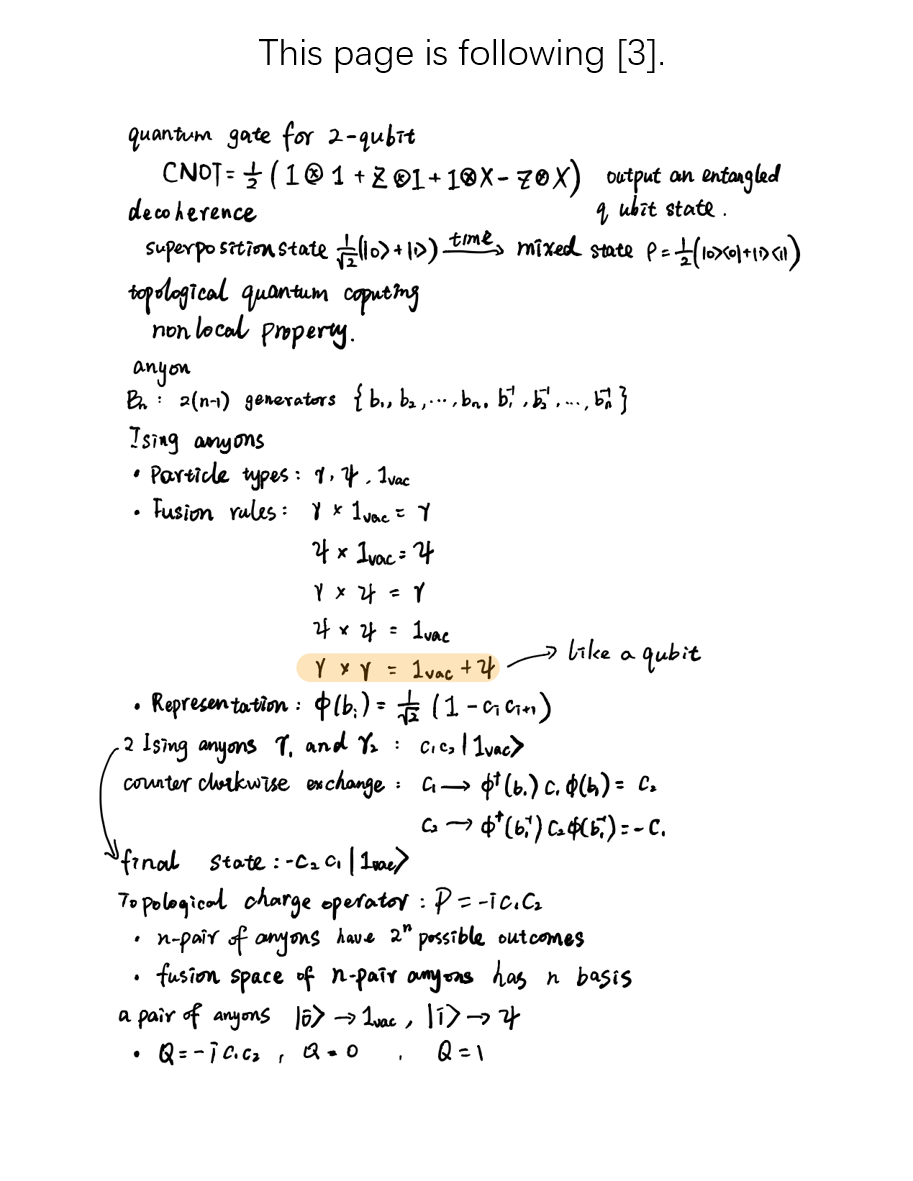 This page is following [3].
quantum gate for 2-qubit
CNOT = 1/2 (1⊗1 + Z⊗1 + 1⊗X - Z⊗X) output an entangled
qubit state.
decoherence
superposition state 1/√2(|0> + |1>) time→ mixed state ρ = 1/2(|0><0|+|1><1|)
topological quantum coputing
nonlocal property.
anyon
Bn : 2(n-1) generators { b₁, b₂, ..., bn, b₁⁻¹, b₂⁻¹, ..., bn⁻¹ }
Ising anyons
• Particle types : γ, ψ, 1vac
• Fusion rules : γ × 1vac = γ
ψ × 1vac = ψ
γ × ψ = γ
ψ × ψ = 1vac
γ × γ = 1vac + ψ → like a qubit
• Representation : ϕ(bᵢ) = 1/√2 (1 - cᵢcᵢ₊₁)
2 Ising anyons γ₁ and γ₂ : c₁c₂|1vac>
counter clockwise exchange : c₁ → ϕ†(b₁) c₁ ϕ(b₁) = c₂
c₂ → ϕ†(b₁⁻¹) c₂ ϕ(b₁⁻¹) = -c₁
final state : -c₂c₁|1vac>
Topological charge operator : P = -ic₁c₂
• n-pair of anyons have 2ⁿ possible outcomes
• fusion space of n-pair anyons has n basis
a pair of anyons |0̄> → 1vac, |1̄> → ψ
• Q = -ic₁c₂, Q = 0, Q = 1